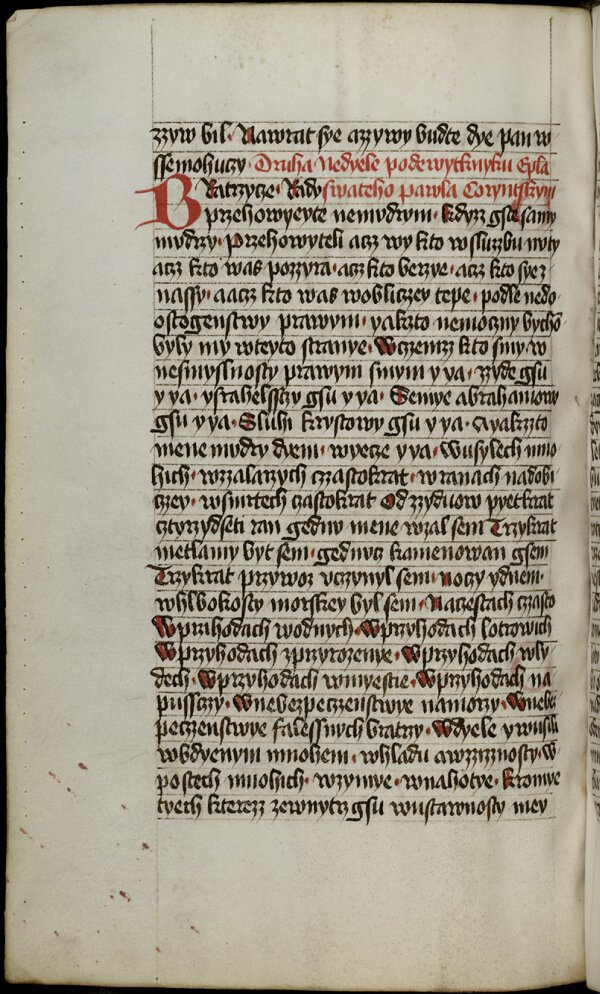 zzyw bil · Nawrat sye azzywy budte dye pan w
ssemohuczy · Druha Nedyele podewytknyku Epla
BRatrzycze · Rady swateho pawla Coryntskym
przehowyeyte nemudrym · kdyz gste samy
mudrzy · Przehowyteli acz wy kto wsluzbu
acz kto was pozzyra · acz kto berzye · acz kto sye
nassy · a acz kto was wobliczey tepe · podle nedo
ostogenstwy prawym · yakzto nemoczny bycho
byly my wteyto stranye · Wczemz kto smy w
nesmyslnosty prawym smym y ya · zzyde gsu
y ya · ysrahelsscy gsu y ya · Semye abrahamowy
gsu y ya · Sluhi krystowy gsu y ya · Ayakzto
mene mudry dyem · wyecze y ya · Wusylech mno
hich · wzzalarzych czastokrat · wranach nadobi
czey · wsmrtech czastokrat Od zzyduow pyetkrat
cztyrzydseti ran gednu mene wzal sem Trzykrat
metlamy byt sem · gednucz kamenowan gsem
Trzykrat przywoz vczynyl sem · noczy ydnem ·
whlbokosty morskey byl sem · Naczestach czasto
Wprzihodach wodnych · Wprzyhodach lotrowich
Wprzyhodach zprzyrozenye · Wprzyhodach wly
dech · Wprzyhodach wmyestie · Wprzyhodach na
pussczy · Wnebezpeczenstwye namorzy · Wnebez
peczenstwye falessnych bratrzy · Wdyele y wusili
wbdyenym mnohem · whladu awzziznosty · w
postech mnohich · wzymye · wnahotye · Kromye
tyech kterezz zewnytrz gsu wustawnosty mey